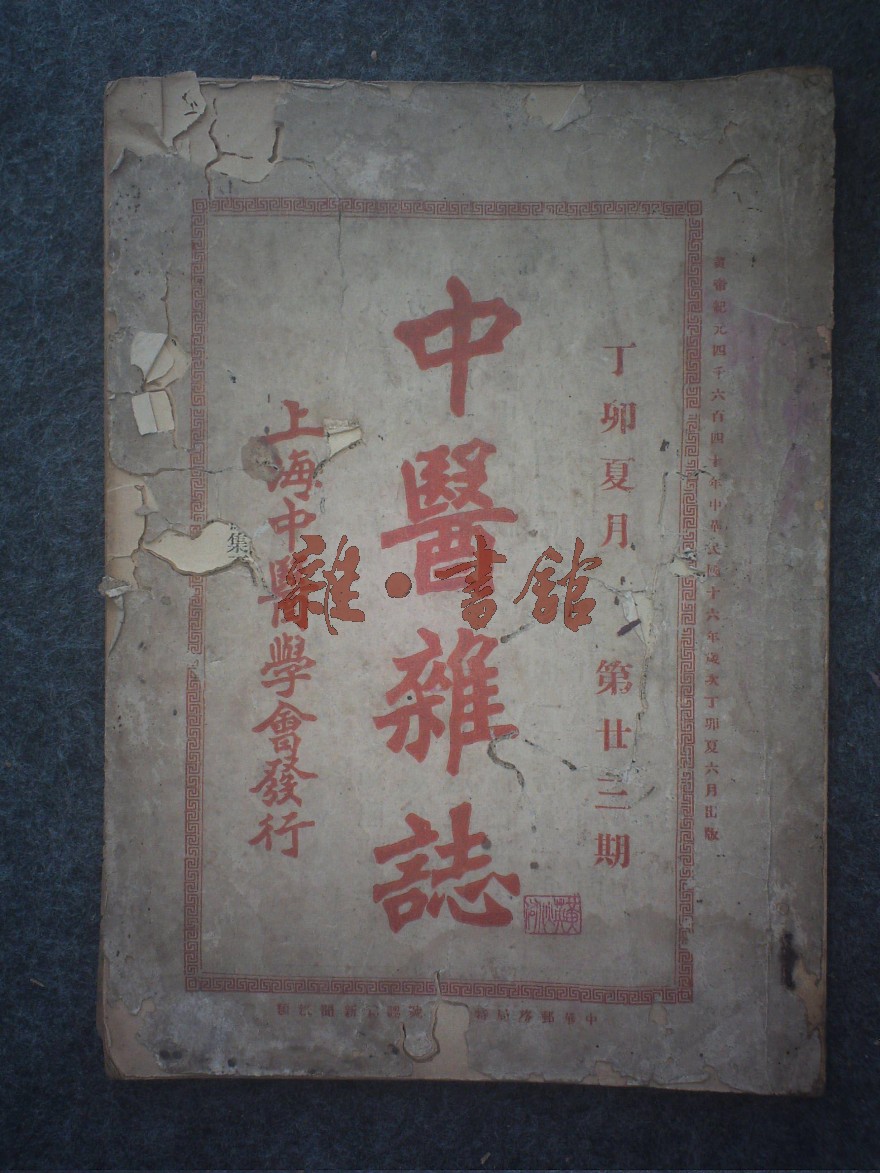 黃帝紀元四千六百四十年中華民國十六年歲次丁卯夏六月出版
丁卯夏月 第廿三期
中醫雜誌
上海中醫學會發行
集
雜·書館
中華郵務局特 號認爲新聞紙類